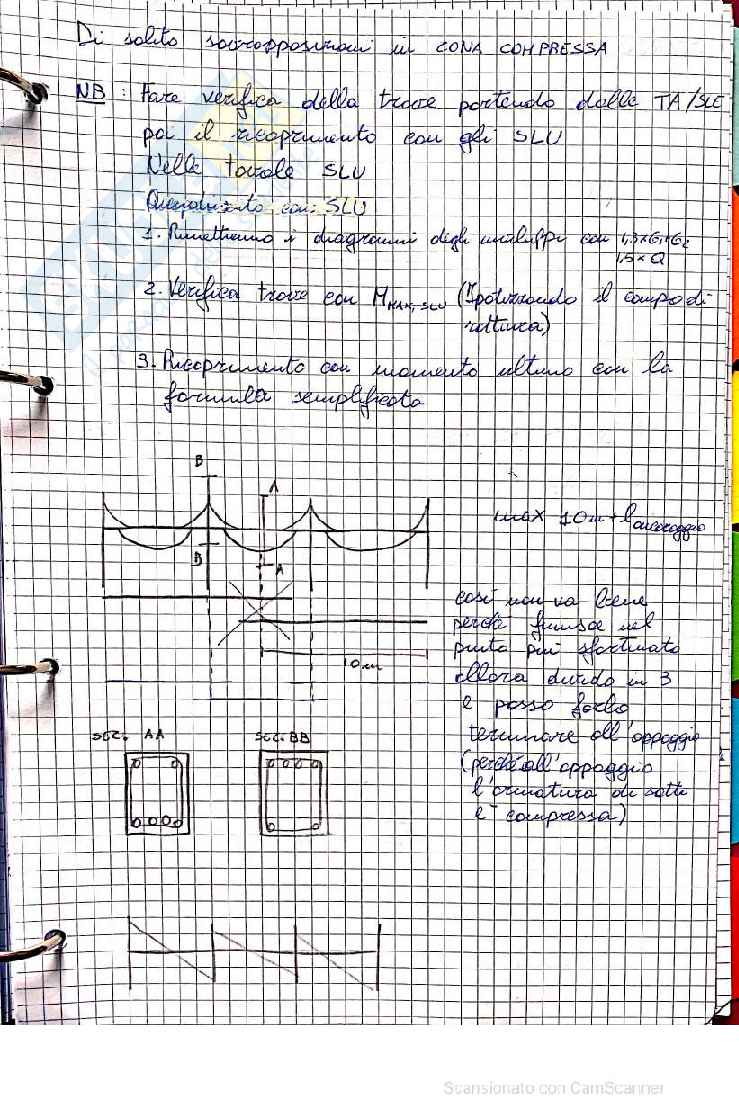 Di solito sovrapposizioni in ZONA COMPRESSA
NB: Fare verifica della trave partendo dalle TA/SLE
poi il ricoprimento con gli SLU
Nelle tavole SLU
con SLU
1. Rimettiamo i diagrammi degli inviluppi con 1,3xG1+G2
1,5xQ
2. Verifica trave con MMAX,SLU (Ipotizzando il campo di
rottura)
3. Ricoprimento con momento ultimo con la
formula semplificata
B
A
max 10m + lancoraggio
B
A
così non va bene
perché finisce nel
punto più sfortunato
10m
allora divido in 3
e posso farlo
sez. AA
sez. BB
terminare all'appoggio
(perché all'appoggio
l'armatura di sotto
è compressa)
Scansionato con CamScanner